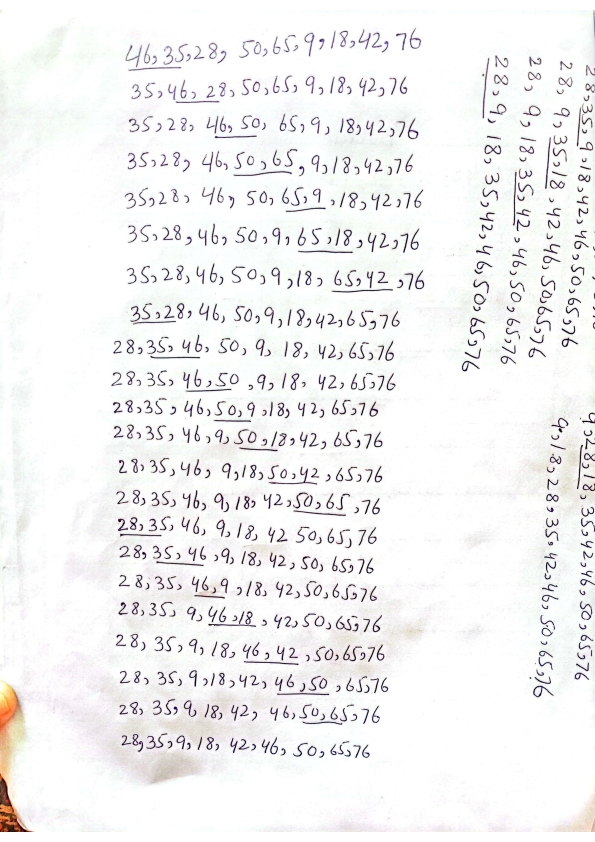 46,35,28, 50,65,9,18,42,76
35,46,28,50,65,9,18,42,76
35,28,46,50,65,9,18,42,76
35,28,46,50,65,9,18,42,76
35,28,46,50,65,9,18,42,76
35,28,46,50,9,65,18,42,76
35,28,46,50,9,18,65,42,76
35,28,46,50,9,18,42,65,76
28,35,46,50,9,18,42,65,76
28,35,46,50,9,18,42,65,76
28,35,46,50,9,18,42,65,76
28,35,46,9,50,18,42,65,76
28,35,46,9,18,50,42,65,76
28,35,46,9,18,42,50,65,76
28,35,46,9,18,42 50,65,76
28,35,46,9,18,42,50,65,76
28,35,46,9,18,42,50,65,76
28,35,9,46,18,42,50,65,76
28,35,9,18,46,42,50,65,76
28,35,9,18,42,46,50,65,76
28,35,9,18,42,46,50,65,76
28,35,9,18,42,46,50,65,76
28,35,9,18,42,46,50,65,76
28,9,35,18,42,46,50,65,76
28,9,18,35,42,46,50,65,76
28,9,18,35,42,46,50,65,76
9,28,18,35,42,46,50,65,76
9,18,28,35,42,46,50,65,76